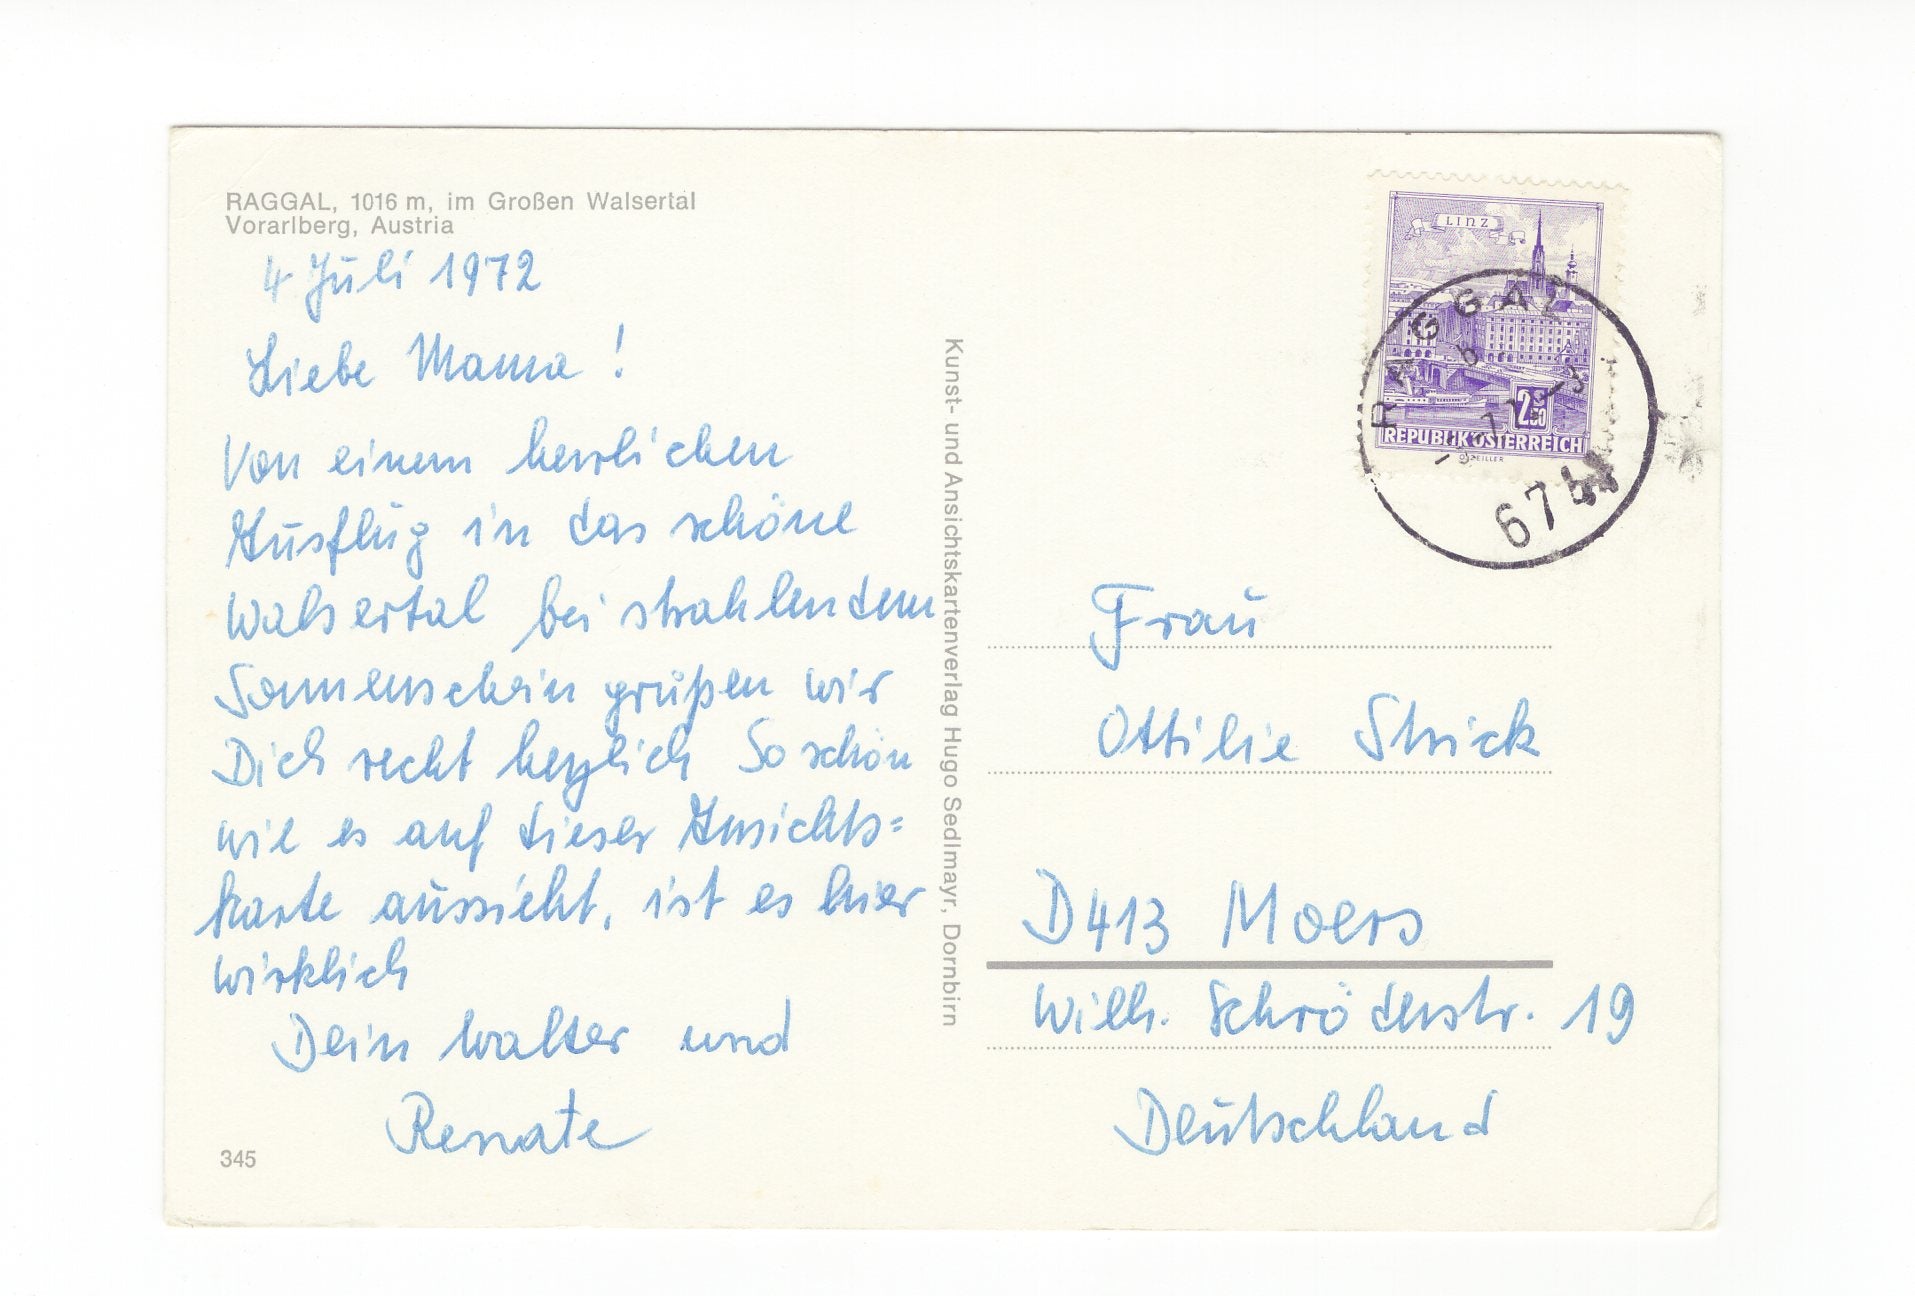 RAGGAL, 1016 m, im Großen Walsertal
Vorarlberg, Austria
4 Juli 1972
Liebe Mama !
Von einem herrlichen
Ausflug in das schöne
Walsertal bei strahlendem
Sonnenschein grüßen wir
Dich recht herzlich So schön
wie es auf dieser Ansichts=
karte aussieht, ist es hier
wirklich
Dein Walter und
Renate
345
Kunst- und Ansichtskartenverlag Hugo Sedlmayr, Dornbirn
LINZ
2.50
REPUBLIK ÖSTERREICH
RAGGAL
b
674
Frau
Ottilie Strick
D413 Moers
Wilh. Schröderstr. 19
Deutschland